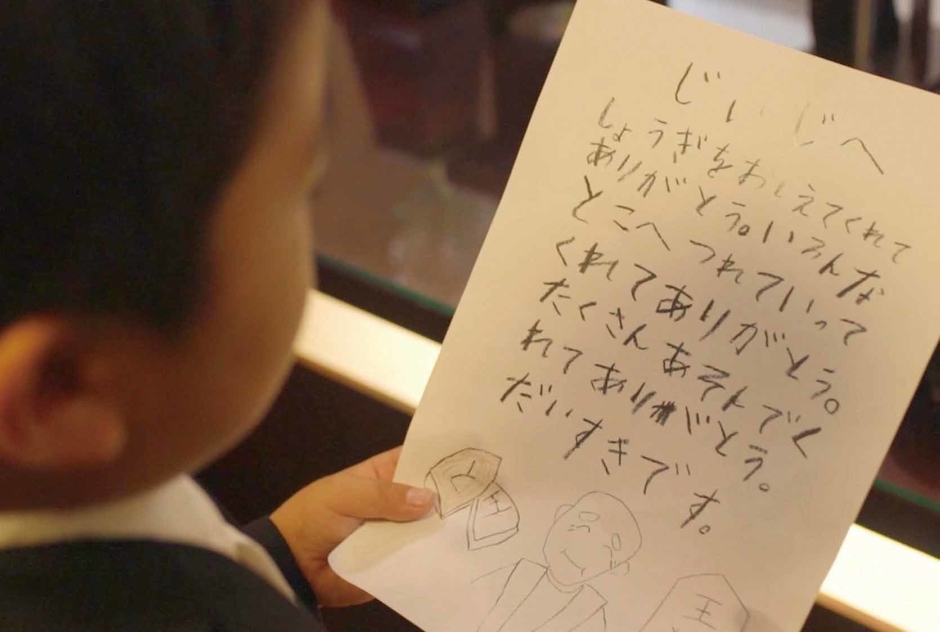 じいじへ
しょうぎをおしえてくれて
ありがとう。いろんな
とこへつれていって
くれてありがとう。
たくさんあそんでく
れてありがとう。
だいすきです。
王
王